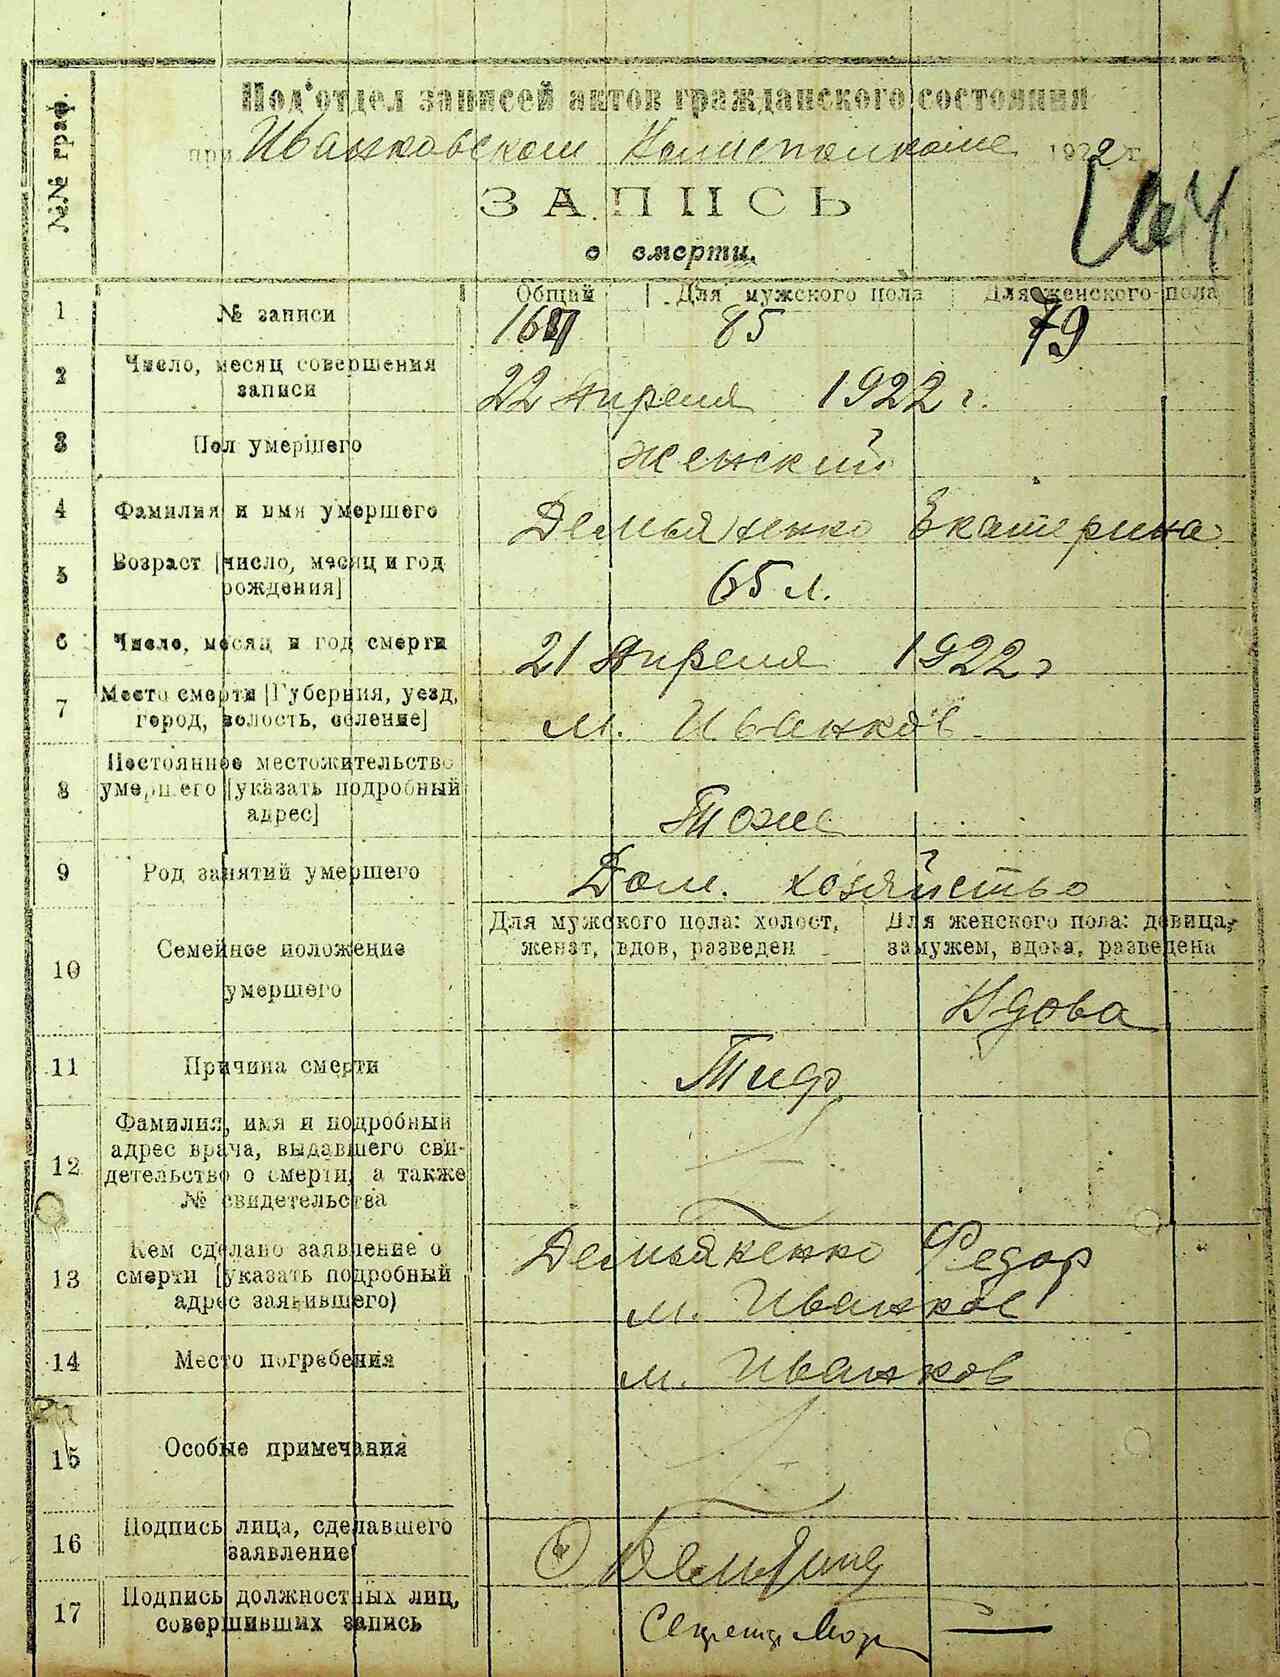 №№ граф.
Под'отдел записей актов гражданского состояния
при Иванковском Волисполкоме 1922 г.
ЗАПИСЬ
о смерти.
1 № записи Общий Для мужского пола Для женского пола
85 79
2 Число, месяц совершения записи
22 Апреля 1922 г.
3 Пол умершего
женский
4 Фамилия и имя умершего
Демьяненко Екатерина
5 Возраст [число, месяц и год рождения]
65 л.
6 Число, месяц и год смерти
21 Апреля 1922 г
7 Место смерти [Губерния, уезд, город, волость, селение]
м. Иванков
8 Постоянное местожительство умершего [указать подробный адрес]
Тоже
9 Род занятий умершего
Дом. хозяйство
10 Семейное положение умершего
Для мужского пола: холост, женат, вдов, разведен
Для женского пола: девица, замужем, вдова, разведена
Вдова
11 Причина смерти
Тиф
12 Фамилия, имя и подробный адрес врача, выдавшего свидетельство о смерти, а также № свидетельства
13 Кем сделано заявление о смерти [указать подробный адрес заявившего)
Демьяненко Федор
м. Иванков
14 Место погребения
м. Иванков
15 Особые примечания
16 Подпись лица, сделавшего заявление
17 Подпись должностных лиц, совершивших запись